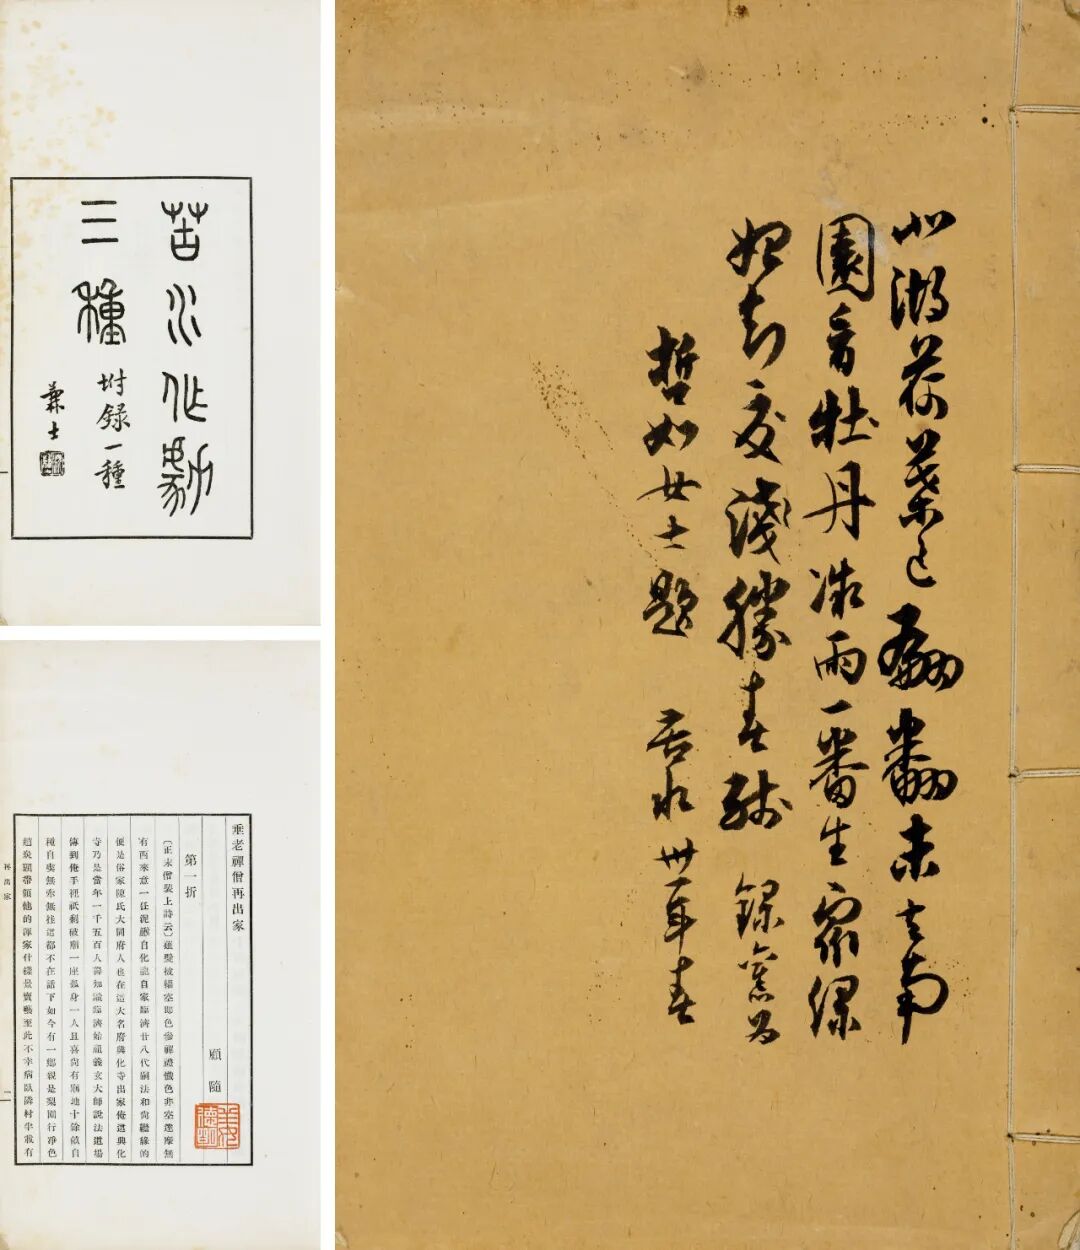 苦水作劇
三種
附錄一種
兼士
垂老禪僧再出家
顧隨
第一折
(正末僧裝上詩云)髮被緇空即色參禪證色非空達摩無
有西來意一任泥龕自化龍自家臨濟廿八代嗣法和尚繼緣的
便是俗家陳氏大同府人也在這大名府興化寺出家俺這興化
寺乃是當年一千五百人善知識臨濟始祖義玄大師說法道場
傳到俺手裡祇剩破廟一座孤身一人且喜尚有廟地十餘畝自
種自喫無牽無掛這都不在話下如今有一鄉親是梨園行淨色
趙炭頭帶領他的渾家什樣景賣藝至此不幸病臥隣村半載有
再出家
一
北湖荷葉已翩翻未去南
園看牡丹微雨一番生眾綠
始知夏淺勝春殘 錄舊為
哲如女士題 苦水卅年春